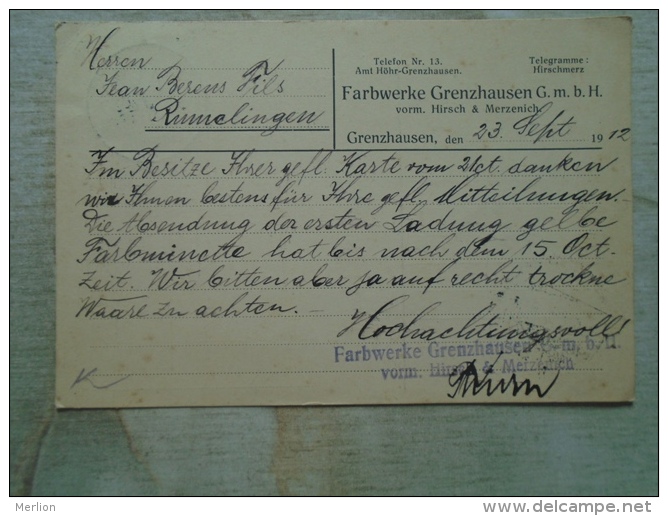 Herren
Jean Berens Fils
Rümelingen
Telefon Nr. 13.
Amt Höhr-Grenzhausen.
Telegramme:
Hirschmerz
Farbwerke Grenzhausen G. m. b. H.
vorm. Hirsch & Merzenich.
Grenzhausen, den 23. Sept 1912
Im Besitze Ihrer gefl. Karte vom 21 ct. danken
wir Ihnen bestens für Ihre gefl. Mitteilungen.
Die Absendung der ersten Ladung gelbe
Farbminette hat bis nach dem 15. Oct.
Zeit. Wir bitten aber ja auf recht trockne
Waare zu achten. —
Hochachtungsvoll
Farbwerke Grenzhausen G. m. b. H.
vorm. Hirsch & Merzenich
Merlion
www.delcampe.net